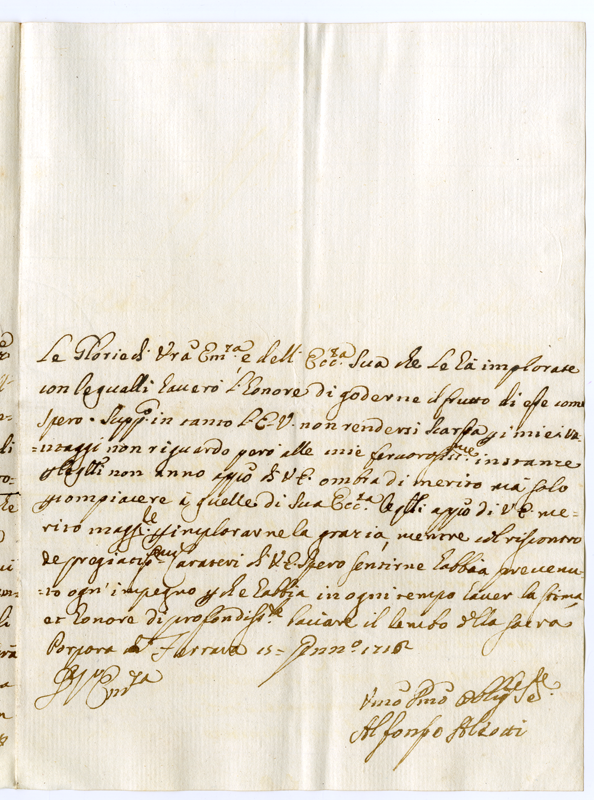 Le Glorie di Vra Em:za e dell' Ecc:za Sua che Le hà implorate
con le qualli haverò l'honore di goderne il frutto di esse come
spero. Supp:co in tanto l'E.V. non rendersi scarsa p i miei va-
=ntaggi non riguardo però alle mie fervorosis:me instanze
q:li non anno app:o di V.E. ombra di merito mà solo
p compiacere i quelle di Sua Ecc:za le q:li app:o di V.E. me=
rito mag:le p implorarne la grazia, mentre col riscontro
de pregiatis:mi Caratteri di V.E. spero sentirne habbia prevenu=
=to ogn' impegno p che habbia in ogni tempo haver la stima,
et honore di profondiss:te bacciare il lembo della Sacra
Porpora Ferrara 15= Genn:o 1716
Em:za
Vmo Dmo Oblig:mo Se:re
Alfonso